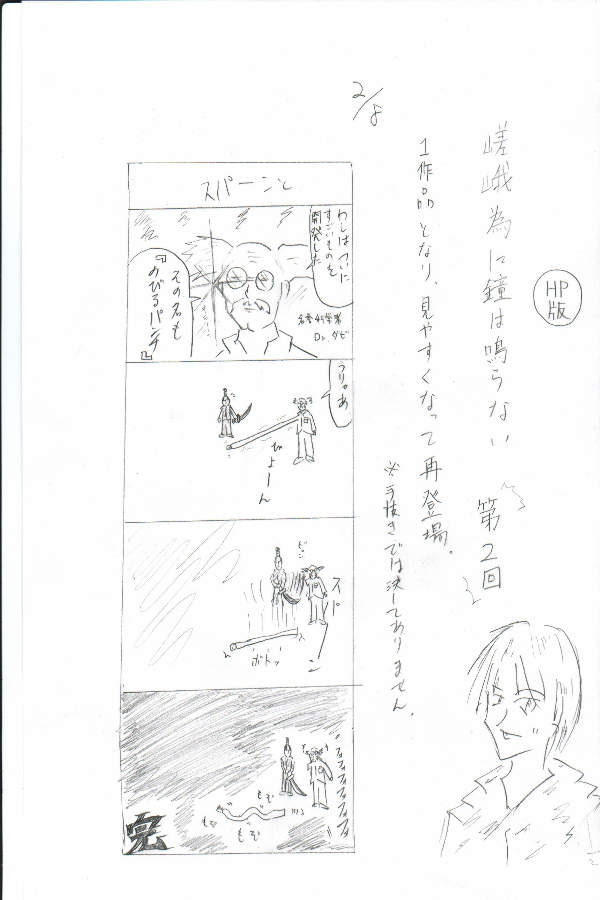 嵯峨為に鐘は鳴らない 第2回
HP
版
1作品となり、見やすくなって再登場。
※手抜きでは決してありません。
2/8
スパーンと
わしはついに
すごいものを
開発した
その名も
『のびるパンチ』
Dr ダビ
うりゃあ
びよーん
スパーン
ボトッ
もぞ
もぞ
もぞ
完